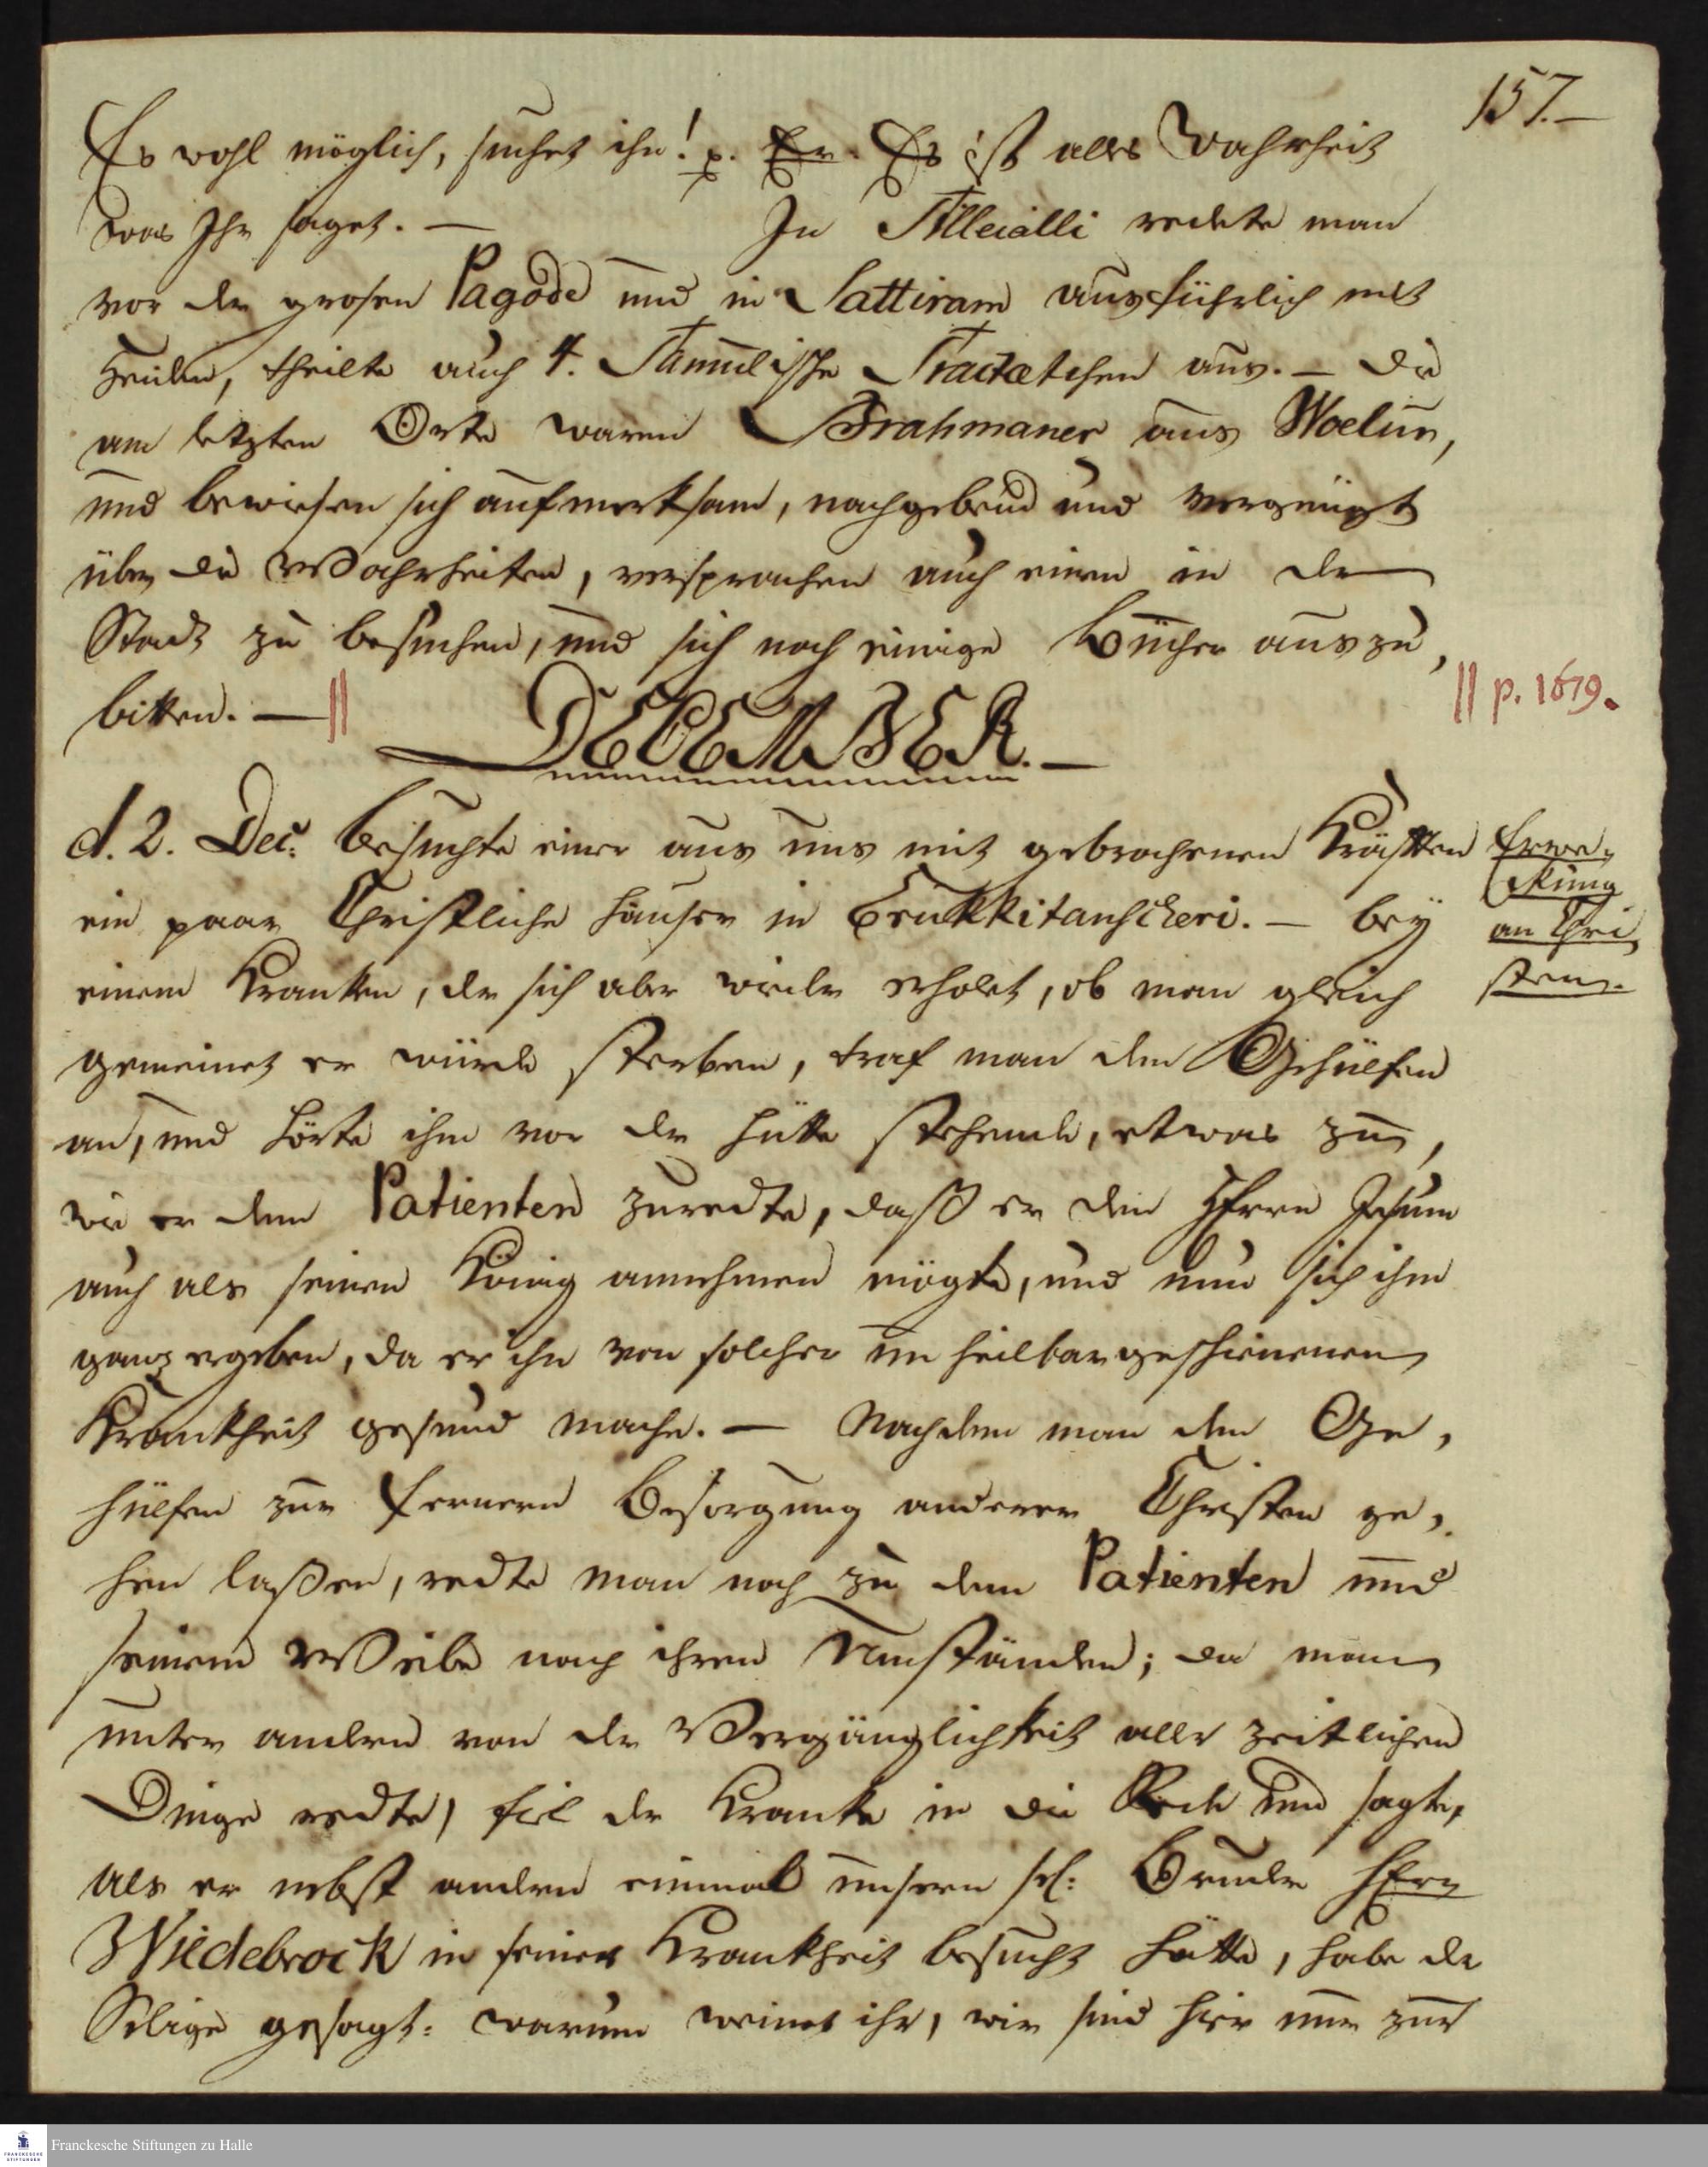 157.
Es wohl möglich, suchet ihn! p. Er. Es ist alles Wahrheit
was Ihr saget. — In Tilleialli redete man
vor der grosen Pagode und in Sattiram ausführlich mit
Heiden, theilte auch 4. Tamulische Tractætchen aus. — Die
am letzten Orte waren Brahmaner aus Woelur,
und bewiesen sich aufmerksam, nachgebend und vergnügt
über die Wahrheiten, versprachen auch einen in der
Stadt zu besuchen, und sich noch einige Bücher auszu,
bitten. — ||
|| p. 1619.
DECEMBER. —
d. 2. Dec. besuchte einer aus uns mit gebrochenen Kräften
ein paar Christliche Häuser in Erukkitanscheri. — bey
einem Kranken, der sich aber wieder erholet, ob man gleich
gemeinet er würde sterben, traf man den Gehülfen
an, und hörte ihm vor der Hütte stehende, etwas zu,
wie er dem Patienten zuredte, daß er den HErrn Jesum
auch als seinen König annehmen mögte, und nun sich ihm
ganz ergeben, da er ihn von solcher unheilbar geschienenen
Krankheit gesund mache. — Nachdem man den Ge,
hülfen zur fernern Besorgung anderer Christen ge,
hen laßen, redte man noch zu dem Patienten und
seinem Weibe nach ihren Umständen; da man
unter andern von der Vergänglichkeit aller zeitlichen
Dinge redte, fiel der Kranke in die Rede und sagte,
als er nebst andern einmal unsern sel: Bruder HErn
Wiedebrock in seiner Krankheit besucht hätte, habe der
Selige gesagt: warum weinet ihr, wir sind hier nur zur
Erwe,
ckung
an Chri,
sten.
Franckesche Stiftungen zu Halle